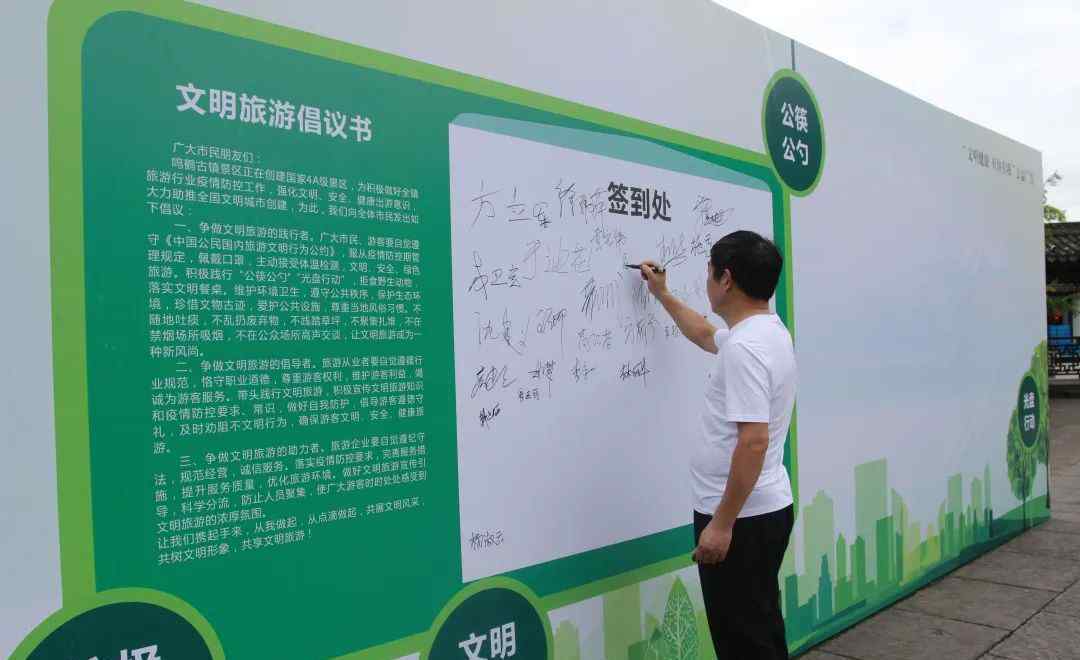 文明旅游倡议书
广大市民朋友们：
鸣鹤古镇景区正在创建国家4A级景区，为积极做好全镇
旅游行业疫情防控工作，强化文明、安全、健康出游意识，
大力助推全国文明城市创建，为此，我们向全体市民发出如
下倡议：
一、争做文明旅游的践行者。广大市民、游客要自觉遵
守《中国公民国内旅游文明行为公约》，服从疫情防控期管
理规定，佩戴口罩，主动接受体温检测，文明、安全、绿色
旅游。积极践行“公筷公勺”“光盘行动”，拒食野生动物，
落实文明餐桌。维护环境卫生，遵守公共秩序，保护生态环
境，珍惜文物古迹，爱护公共设施，尊重当地风俗习惯。不
随地吐痰，不乱扔废弃物，不践踏草坪，不聚集扎堆，不在
禁烟场所吸烟，不在公众场所高声交谈，让文明旅游成为一
种新风尚。
二、争做文明旅游的倡导者。旅游从业者要自觉遵循行
业规范，恪守职业道德，尊重游客权利，维护游客利益，竭
诚为游客服务。带头践行文明旅游，积极宣传文明旅游知识
和疫情防控要求、常识，做好自我防护，倡导游客遵德守
礼，及时劝阻不文明行为，确保游客文明、安全、健康旅
游。
三、争做文明旅游的助力者。旅游企业要自觉遵纪守
法，规范经营，诚信服务。落实疫情防控要求，完善服务措
施，提升服务质量，优化旅游环境。做好文明旅游宣传引
导，科学分流，防止人员聚集，使广大游客时时处处感受到
文明旅游的浓厚氛围。
让我们携起手来，从我做起，从点滴做起，共展文明风采，
共树文明形象，共享文明旅游！
签到处
方立军
于迪
杨淑云
公筷
公勺
光盘
行动
文明